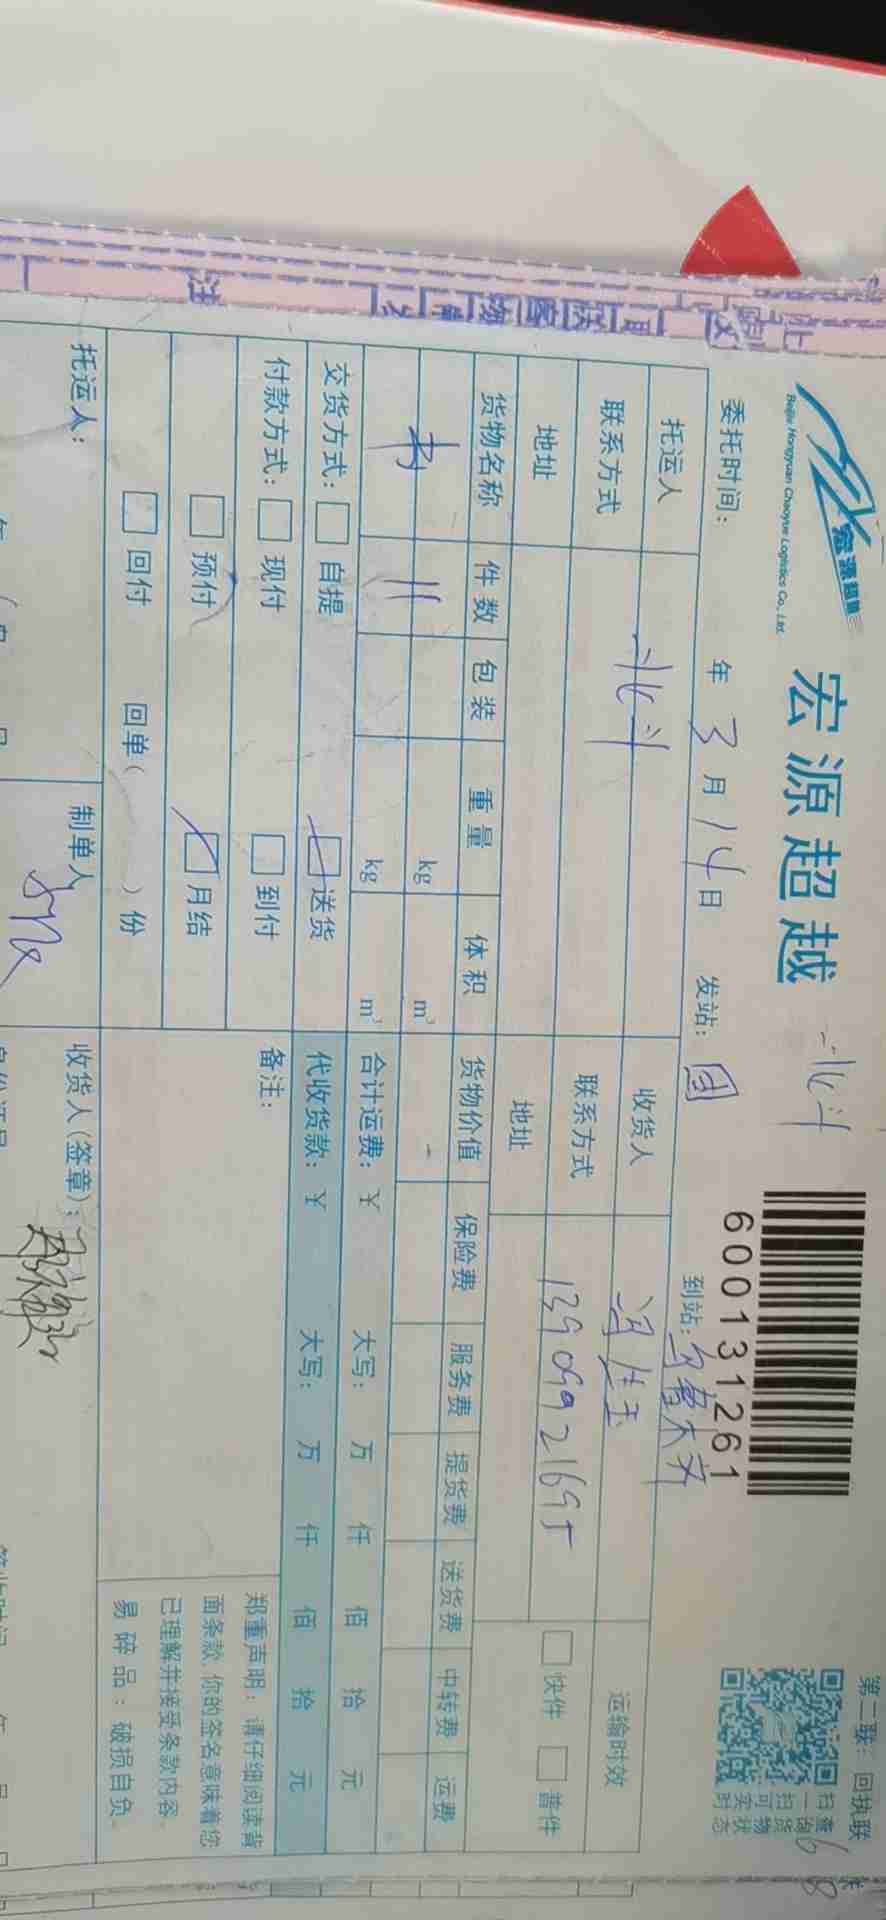 宏源超越
Beijing Hongyuan Chaoyue Logistics Co., Ltd.
宏源超越
北斗
600131261
第二联：回执联
扫一扫
查询货物
可实时状态
68
委托时间： 年 3 月 14 日 发站： 国 到站：乌鲁木齐
托运人 北斗 收货人 冯生 运输时效
联系方式 联系方式 13909921695 快件 普件
地址 地址
货物名称 件数 包装 重量 体积 货物价值 保险费 服务费 提货费 送货费 中转费 运费
书 11 kg m³
kg m³
交货方式： 自提 送货 合计运费：¥ 大写： 万 仟 佰 拾 元
付款方式： 现付 到付 代收货款：¥ 大写： 万 仟 佰 拾 元
预付 月结 备注：
回付 回单（ ）份
郑重声明：请仔细阅读背
面条款，你的签名意味着您
已理解并接受条款内容。
易碎品：破损自负。
托运人： 制单人 收货人（签章）：
注